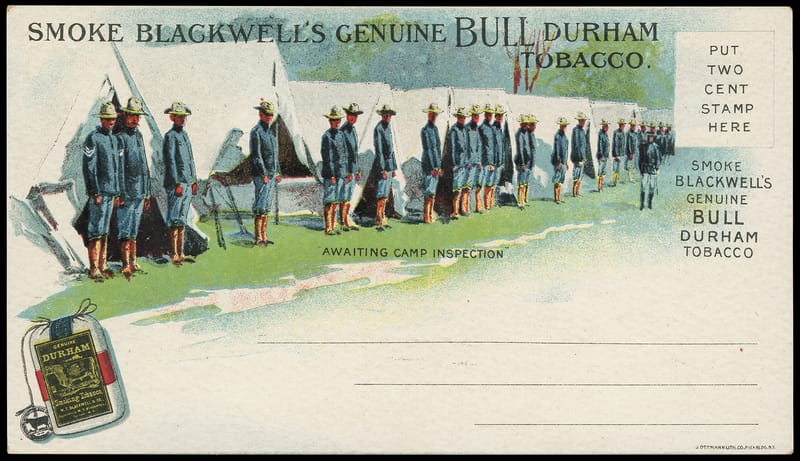 SMOKE BLACKWELL'S GENUINE BULL DURHAM
TOBACCO.
PUT
TWO
CENT
STAMP
HERE
SMOKE
BLACKWELL'S
GENUINE
BULL
DURHAM
TOBACCO
AWAITING CAMP INSPECTION
GENUINE
DURHAM
Smoking Tobacco
W.T. BLACKWELL & CO.
J. OTTMANN LITH. CO. PUCK BLDG. N.Y.